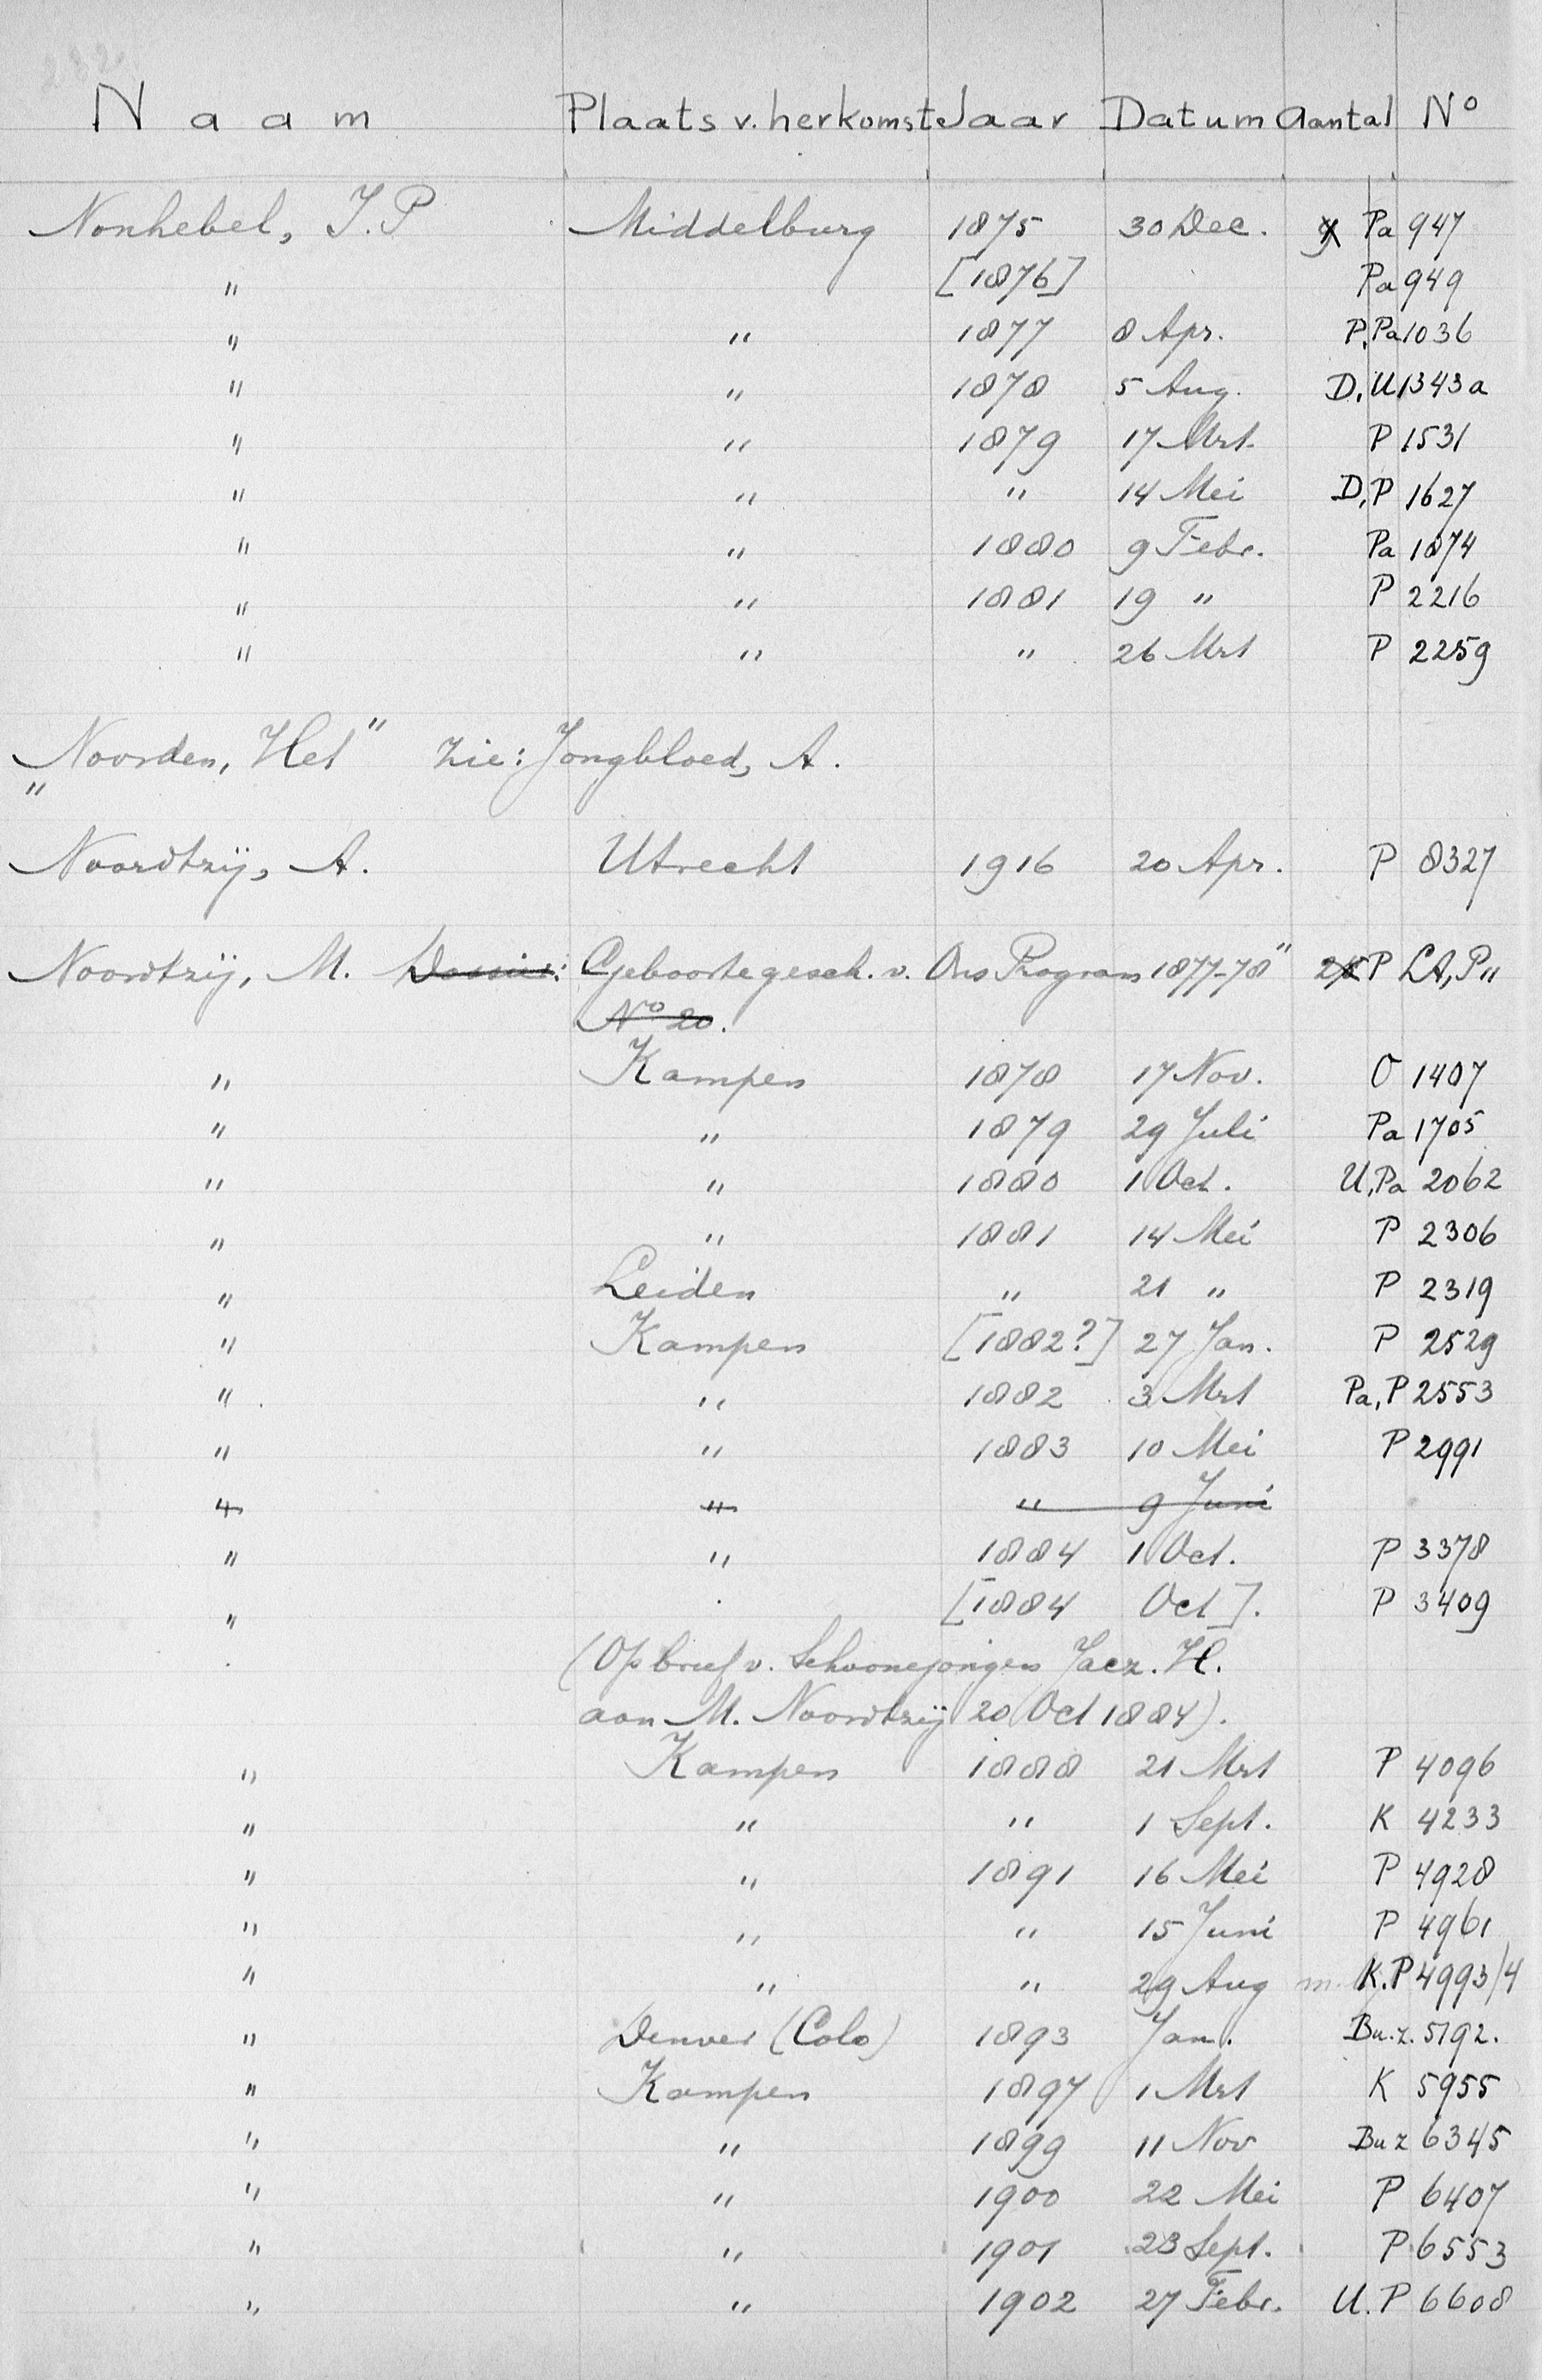 Naam Plaats v. herkomst Jaar Datum Aantal No
Nonhebel, J. P Middelburg 1875 30 Dec. Pa 947
" [1876] Pa 949
" " 1877 8 Apr. P, Pa 1036
" " 1878 5 Aug. D, U 1343a
" " 1879 17 Mrt. P 1531
" " " 14 Mei D, P 1627
" " 1880 9 Febr. Pa 1874
" " 1881 19 " P 2216
" " " 26 Mrt P 2259
„Noorden, Het" zie: Jongbloed, A.
Noordtzij, A. Utrecht 1916 20 Apr. P 8327
Noordtzij, M. Dossier: Geboortegesch. v. Ons Program 1877-78" P LA, P„
No 20.
" Kampen 1878 17 Nov. O 1407
" " 1879 29 Juli Pa 1705
" " 1880 1 Oct. U, Pa 2062
" " 1881 14 Mei P 2306
" Leiden " 21 " P 2319
" Kampen [1882?] 27 Jan. P 2529
" " 1882 3 Mrt Pa, P 2553
" " 1883 10 Mei P 2991
" " " 9 Juni
" " 1884 1 Oct. P 3378
" [1884 Oct]. P 3409
(Op brief v. Schoonejongen Jacz. H.
aan M. Noordtzij 20 Oct 1884).
" Kampen 1888 21 Mrt P 4096
" " " 1 Sept. K 4233
" " 1891 16 Mei P 4928
" " " 15 Juni P 4961
" " " 29 Aug K. P 4993/4
" Denver (Colo) 1893 Jan. Bu. z. 5192.
" Kampen 1897 1 Mrt K 5955
" " 1899 11 Nov Bu z 6345
" " 1900 22 Mei P 6407
" " 1901 23 Sept. P 6553
" " 1902 27 Febr. U. P 6608